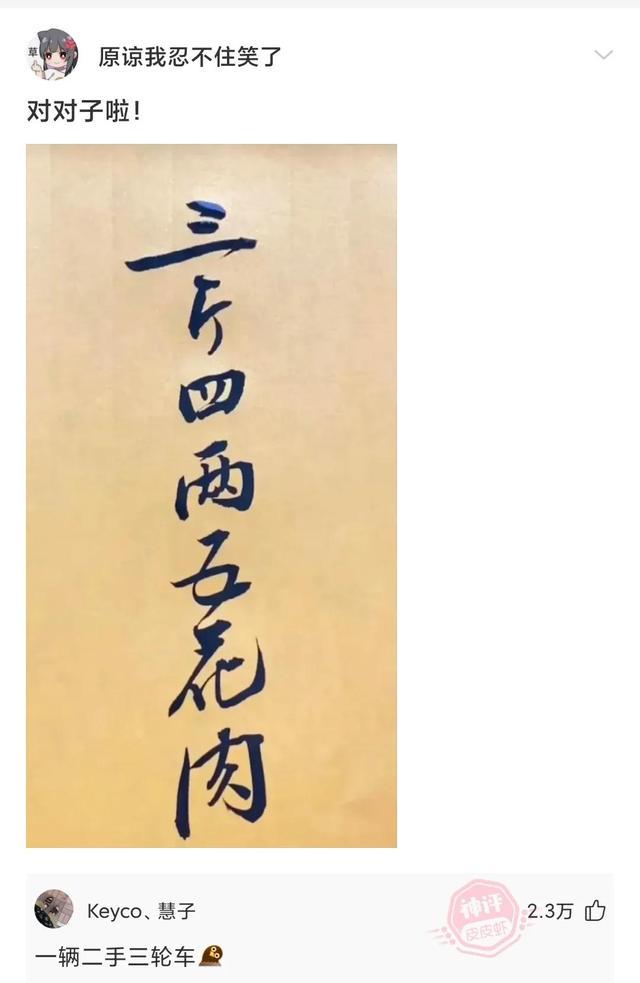 草
原谅我忍不住笑了
对对子啦！
三斤四两五花肉
Keyco、慧子
神评
皮皮虾
2.3万
一辆二手三轮车